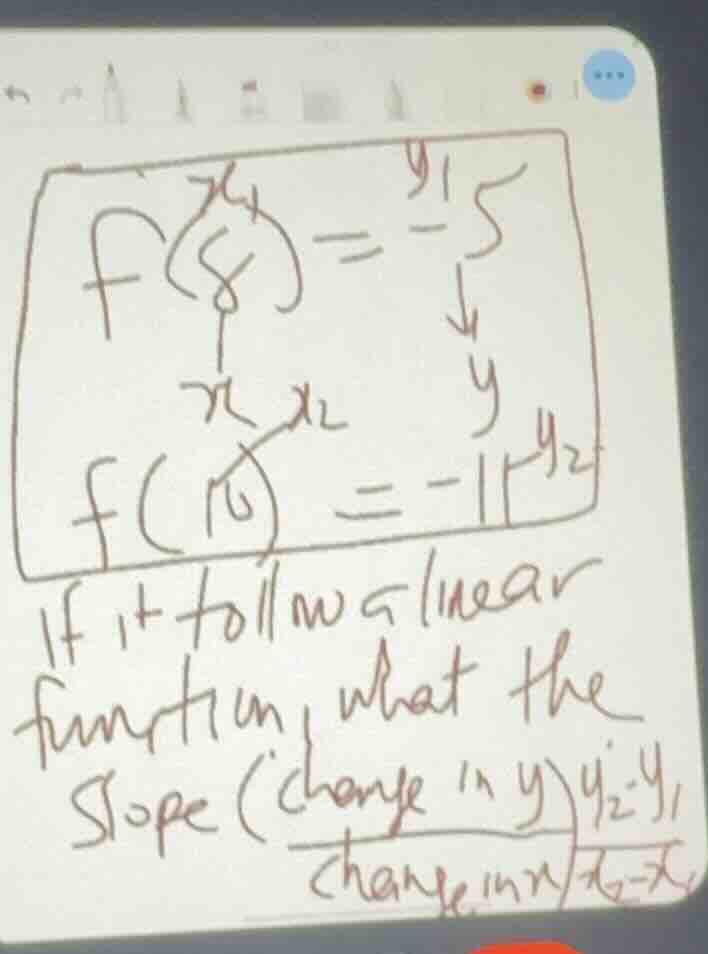 x1 y1
f(8) = -5
x y
x2 y2
f(10) = -11
If it follow a linear
function, what the
slope (change in y) y2-y1
change in x x2-x1